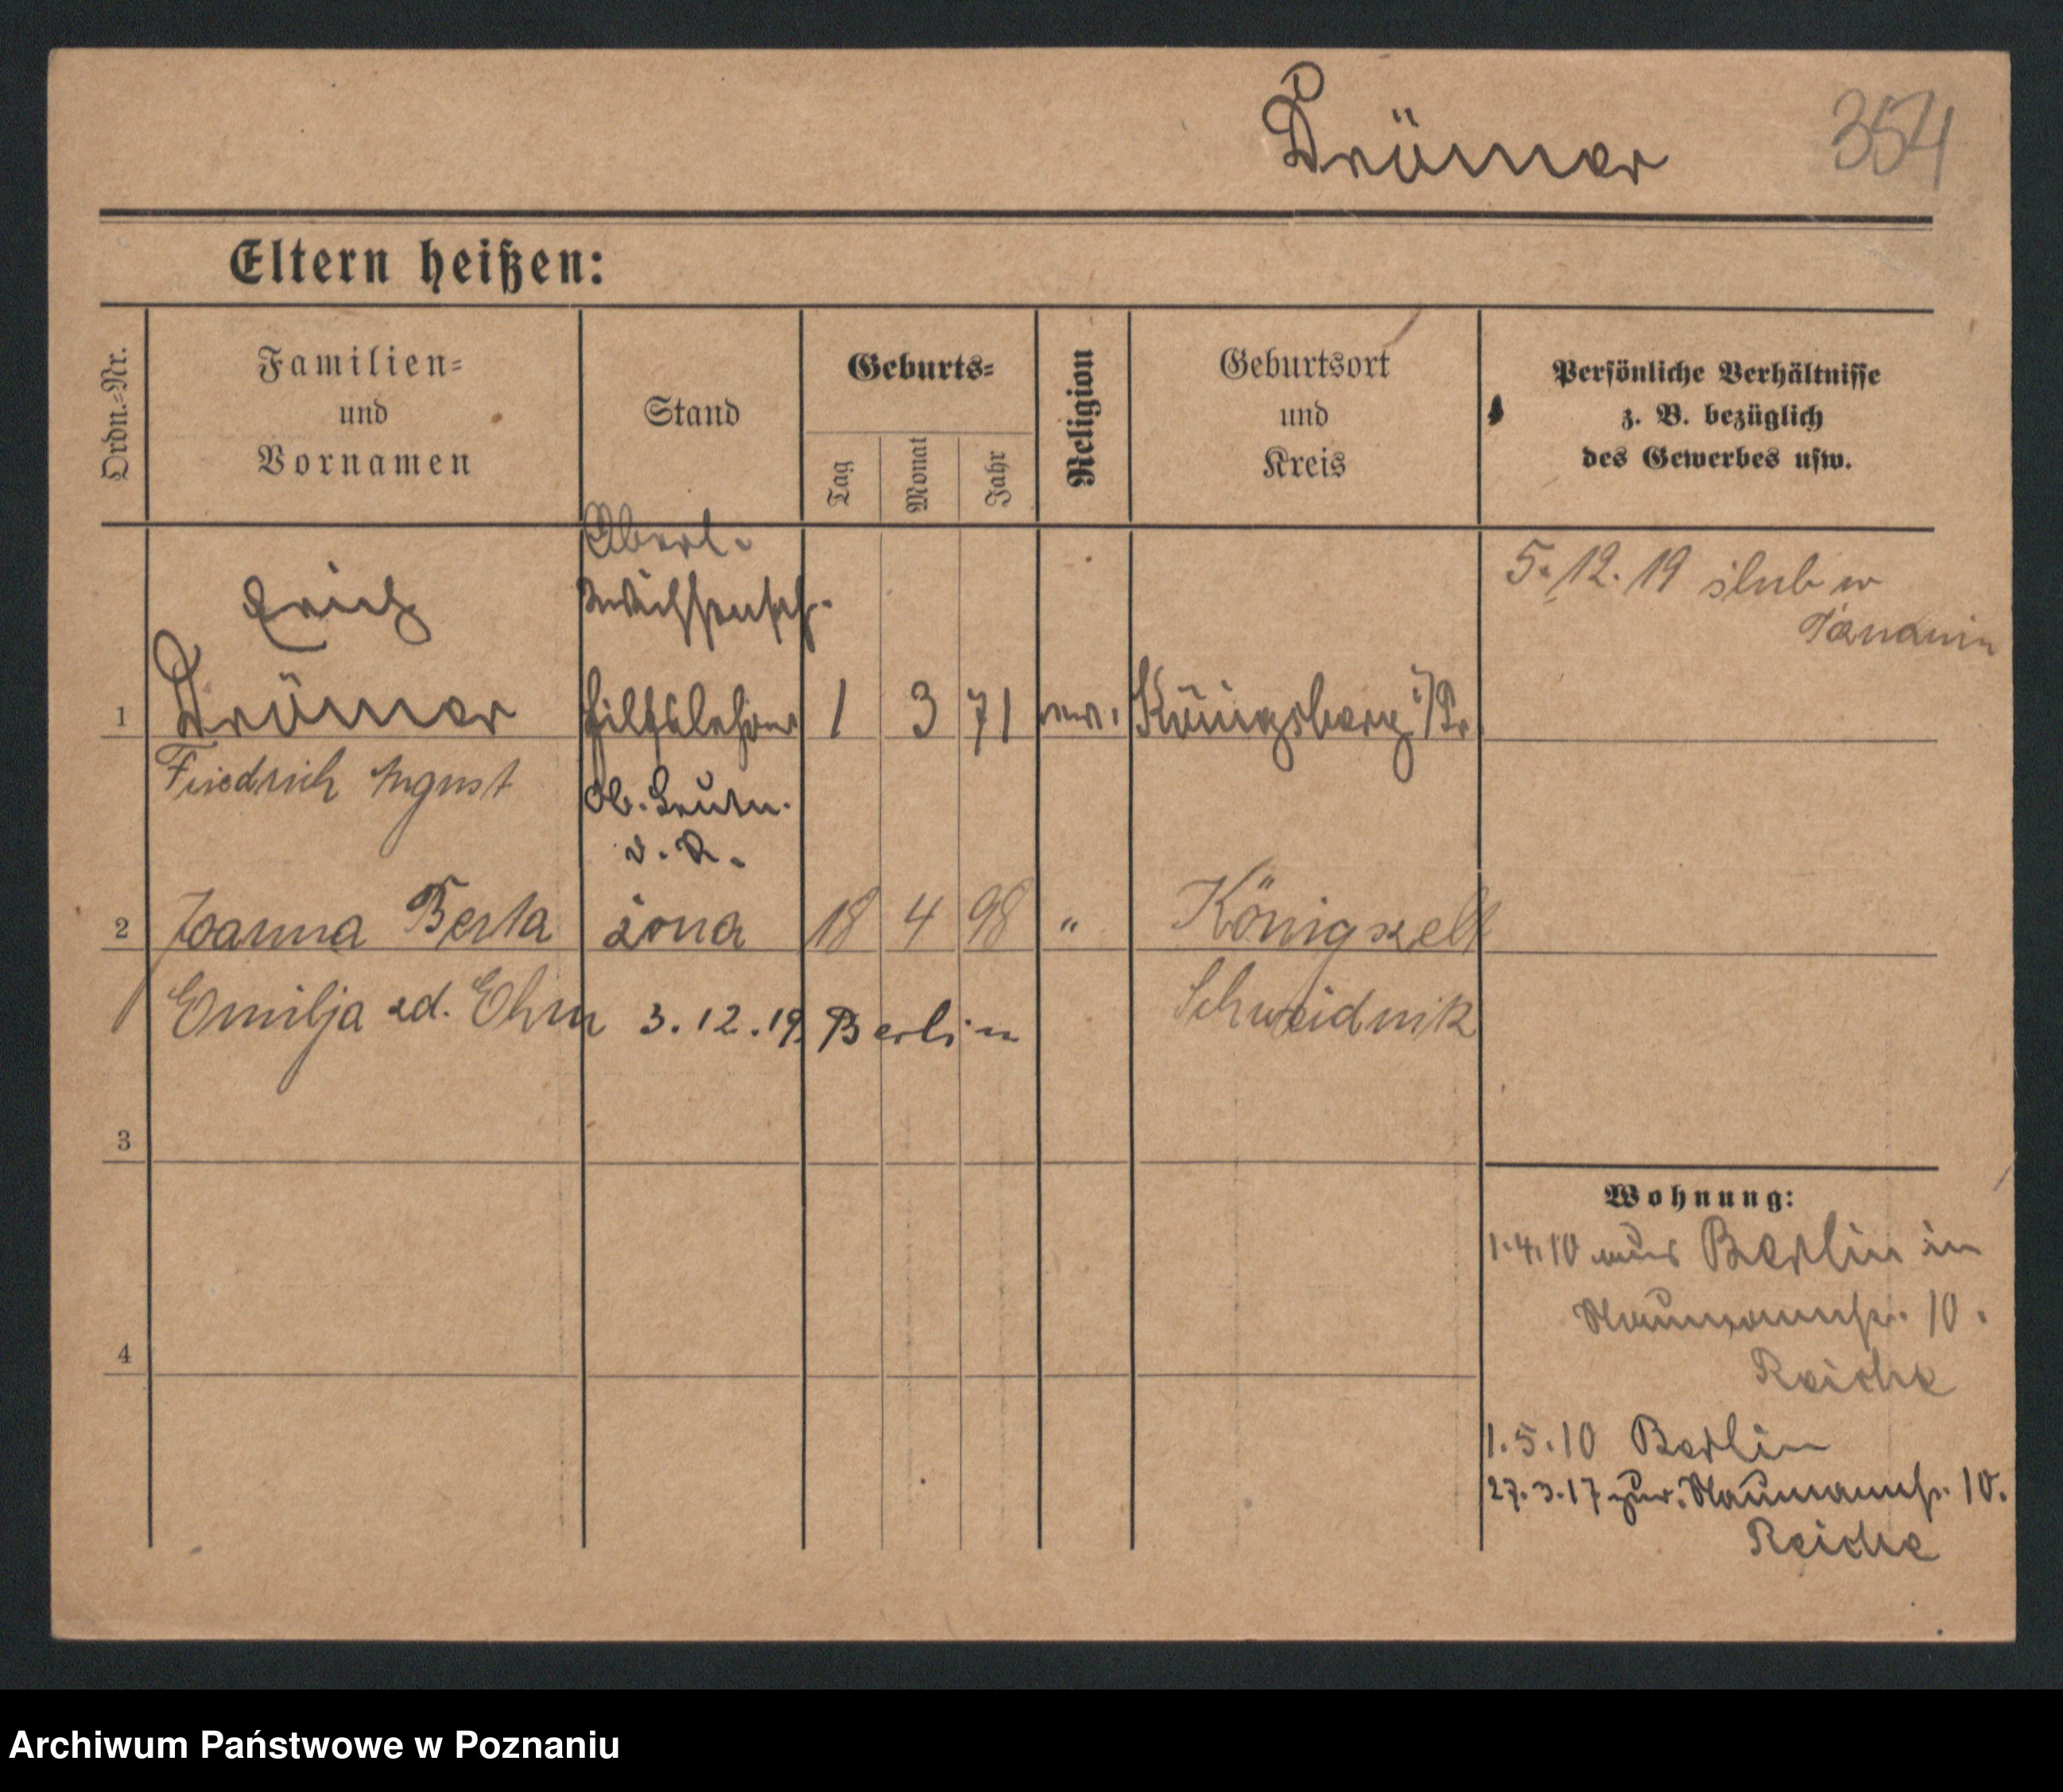 Drömer 354
Eltern heißen:
Ordn.=Nr.
Familien=
und
Vornamen
Stand
Geburts=
Tag
Monat
Jahr
Religion
Geburtsort
und
Kreis
Persönliche Verhältnisse
z. B. bezüglich
des Gewerbes usw.
Oberl.
5. 12. 19 ślub w
Poznaniu
Erich
wissensch.
1 Drömer Hilfslehrer 1 3 71 ev. Königsberg i/Pr.
Friedrich August
Ob. Leutn.
d. R.
2 Joanna Berta żona 18 4 98 " Königszelt
Emilja zd. Ehm 3. 12. 19 Berlin Schweidnik
3
Wohnung:
1.4.10 aus Berlin in
Naumannstr. 10.
Reiche
4
1.5.10 Berlin
27.3.17 zur. Naumannstr. 10.
Reiche
Archiwum Państwowe w Poznaniu